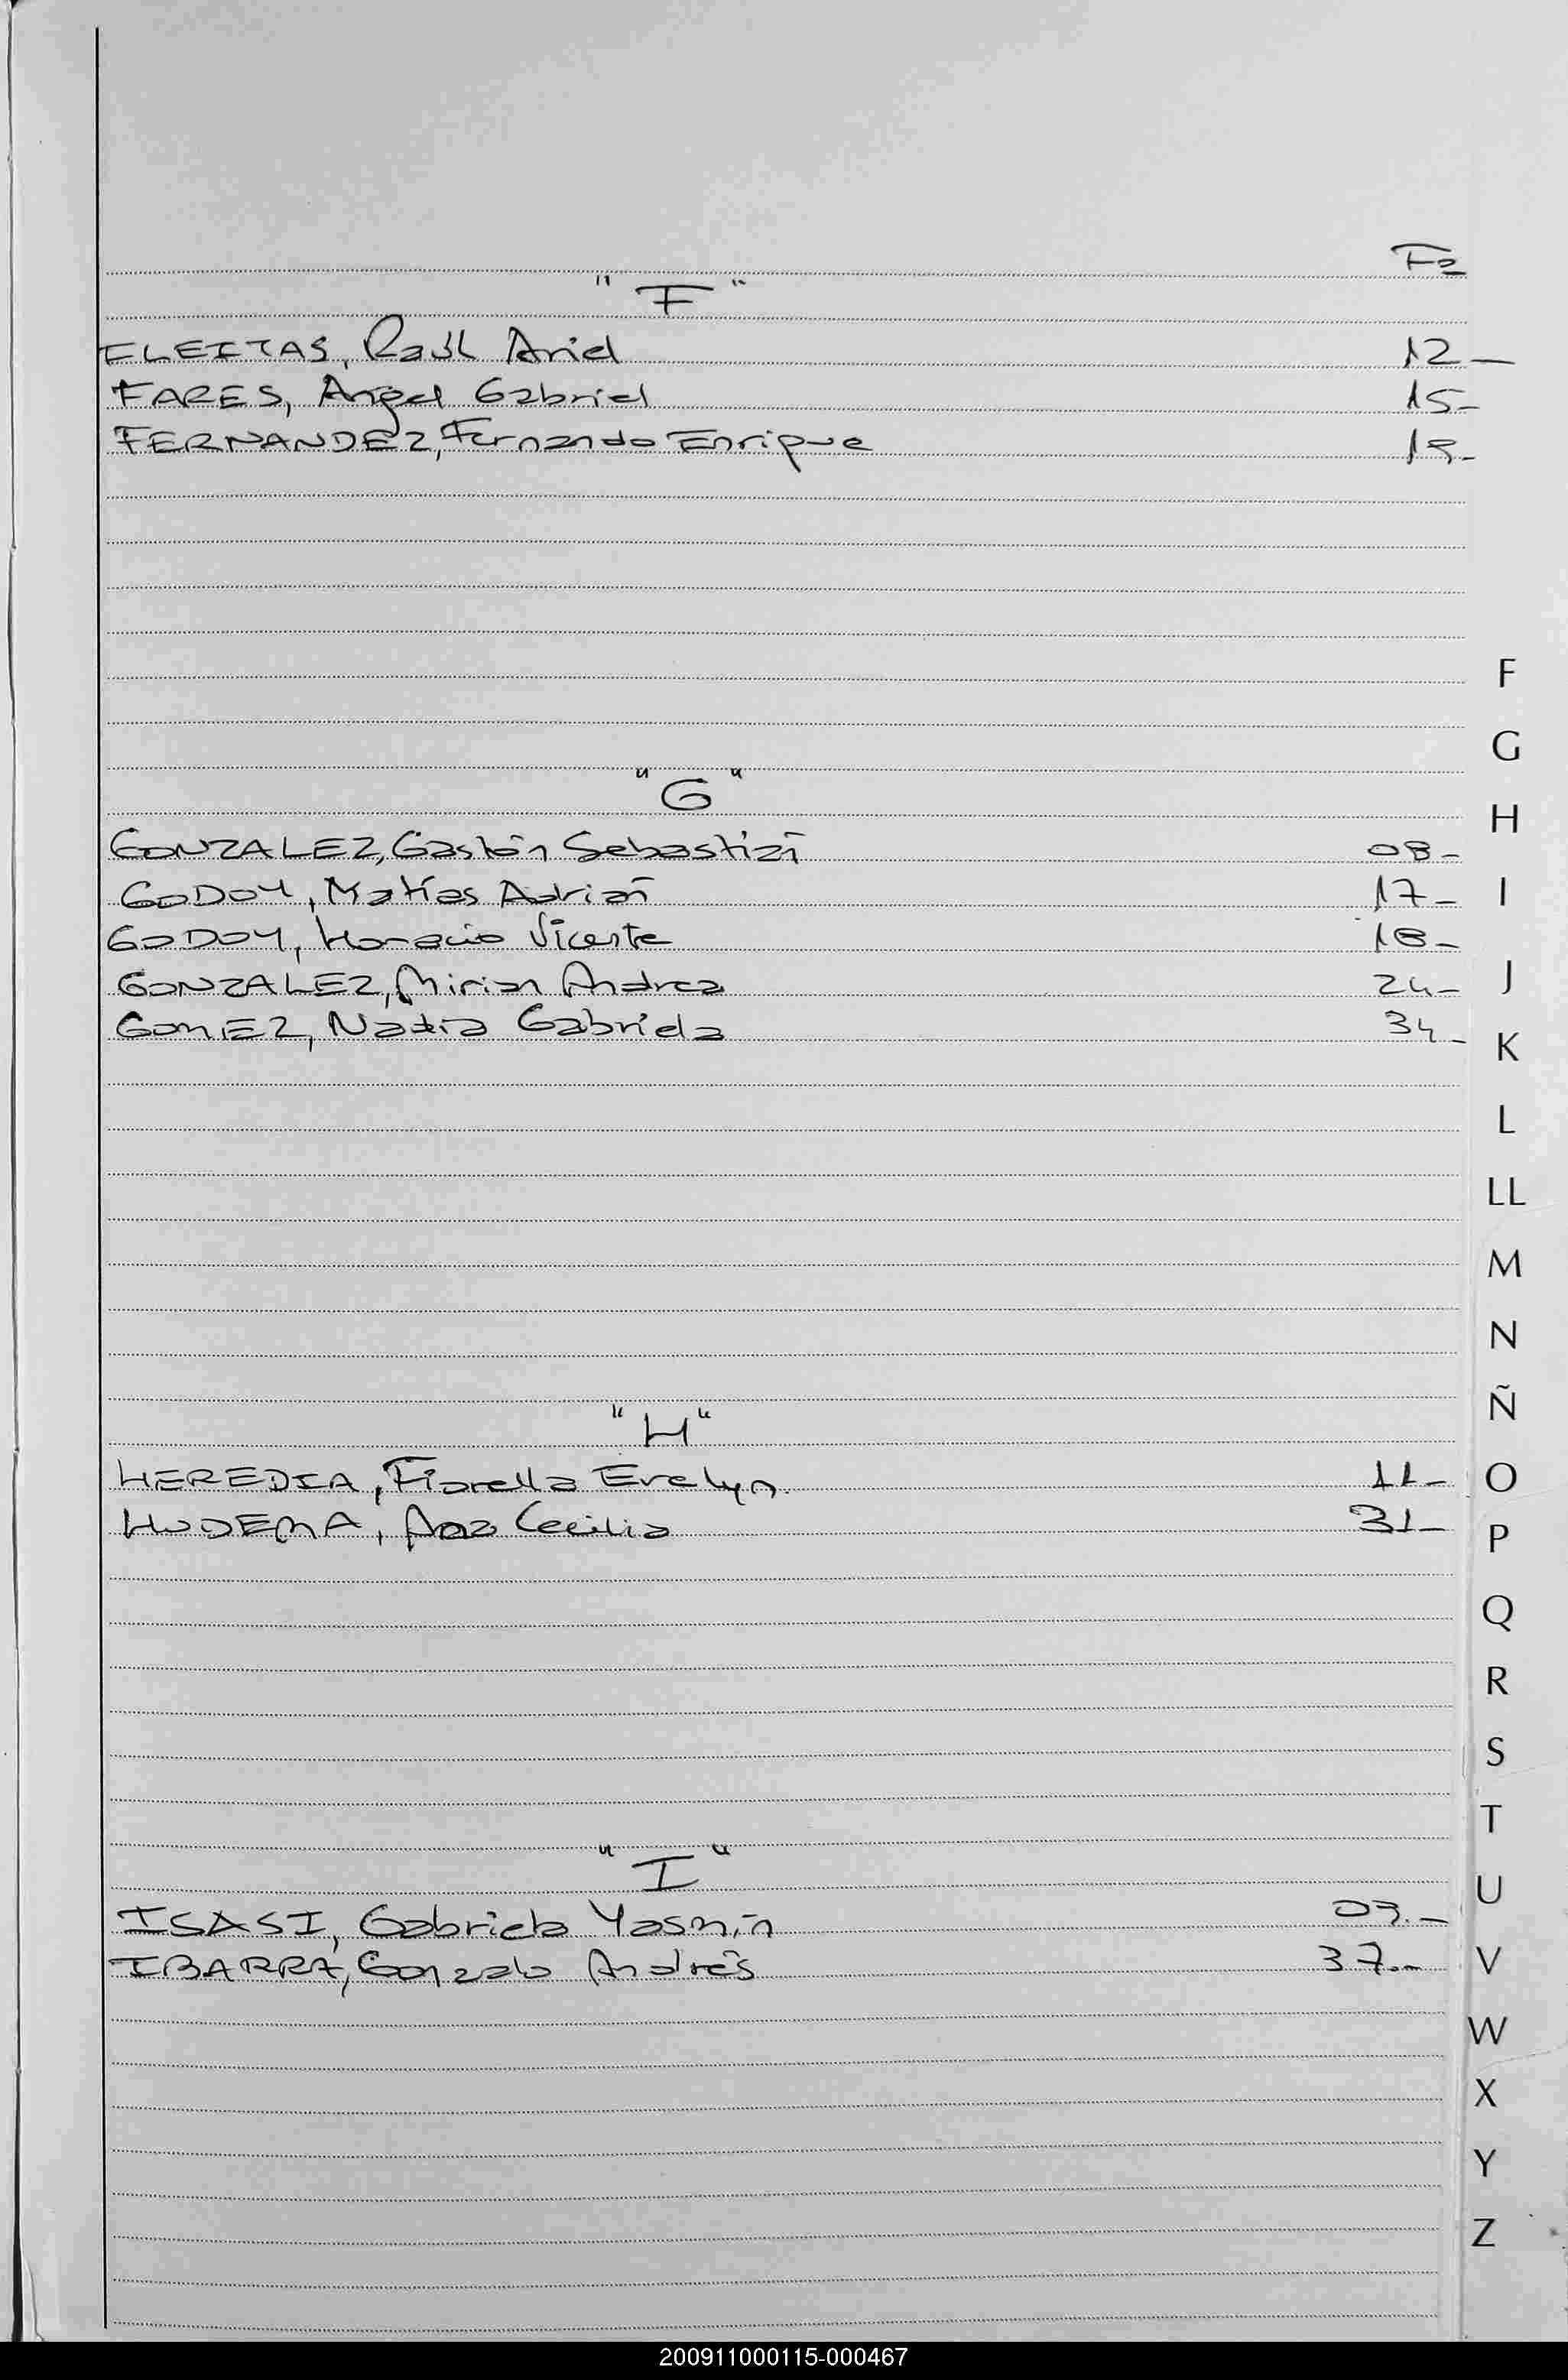 Fº
"F"
FLEITAS, Raúl Ariel 12-
FARES, Angel Gabriel 15-
FERNANDEZ, Fernando Enrique 19-
"G"
GONZALEZ, Gastón Sebastián 08-
GODOY, Matías Adrián 17-
GODOY, Horacio Vicente 18-
GONZALEZ, Mirian Andrea 24-
GOMEZ, Nadia Gabriela 34-
"H"
HEREDIA, Fiorella Evelyn. 11-
HUDEMA, Ana Cecilia 31-
"I"
ISASI, Gabriela Yasmín 09.-
IBARRA, Gonzalo Andrés 37.-
F
G
H
I
J
K
L
LL
M
N
Ñ
O
P
Q
R
S
T
U
V
W
X
Y
Z
200911000115-000467